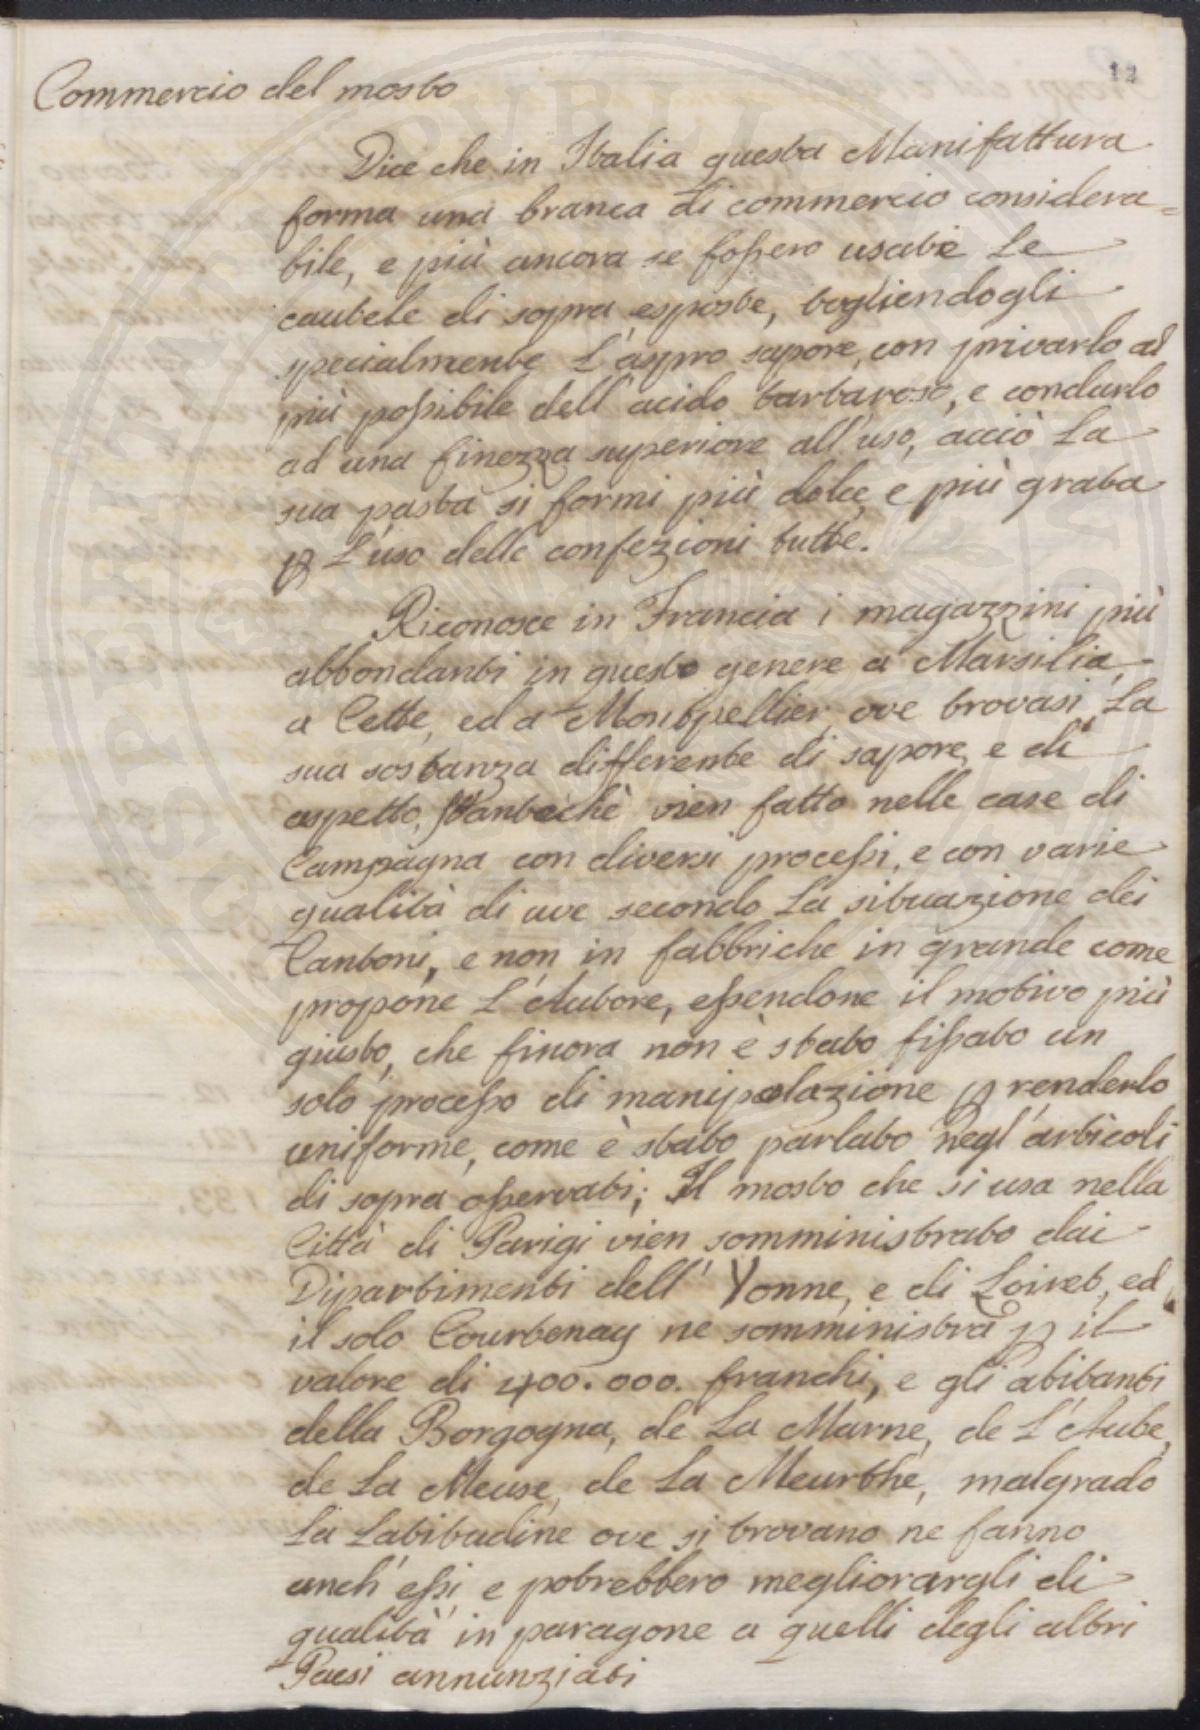 12
Commercio del mosto
Dice che in Italia questa Manifattura
forma una branca di commercio considera=
bile, e più ancora se fossero usate le
cautele di sopra esposte, togliendogli
specialmente l'aspro sapore, con privarlo al
più possibile dell'acido tartaroso, e condurlo
ad una finezza superiore all'uso, acciò la
sua pasta si formi più dolce, e più grata
p l'uso delle confezioni tutte.
Riconosce in Francia i magazzini più
abbondanti in questo genere a Marsilia,
a Cette, ed a Montpellier, ove trovasi la
sua sostanza differente di sapore, e di
aspetto, stantechè vien fatto nelle case di
Campagna con diversi processi, e con varie
qualità di uve secondo la situazione dei
Cantoni, e non in fabbriche in grande come
propone l'Autore, essendone il motivo più
giusto, che finora non è stato fissato un
solo processo di manipolazione p renderlo
uniforme, come è stato parlato negl'articoli
di sopra osservati; Il mosto che si usa nella
Città di Parigi vien somministrato dai
Dipartimenti dell' Yonne, e di Loiret, ed
il solo Courtenay ne somministra p il
valore di 400.000. franchi, e gli abitanti
della Borgogna, de la Marne, de l'Aube,
de la Meuse, de la Meurthe, malgrado
la latitudine ove si trovano ne fanno
anch'essi, e potrebbero megliorargli di
qualità in paragone a quelli degli altri
Paesi annunziati